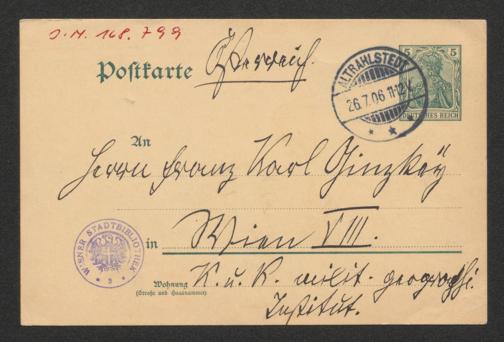 J.N. 168.799
Postkarte
Österreich.
5 5
DEUTSCHES REICH
ALTRAHLSTEDT
26.7.06 11-12V.
An
Herrn Franz Karl Ginzkey
in Wien VIII.
WIENER STADTBIBLIOTHEK
Wohnung
(Straße und Hausnummer)
K. u. K. milit. geographi.
Institut.